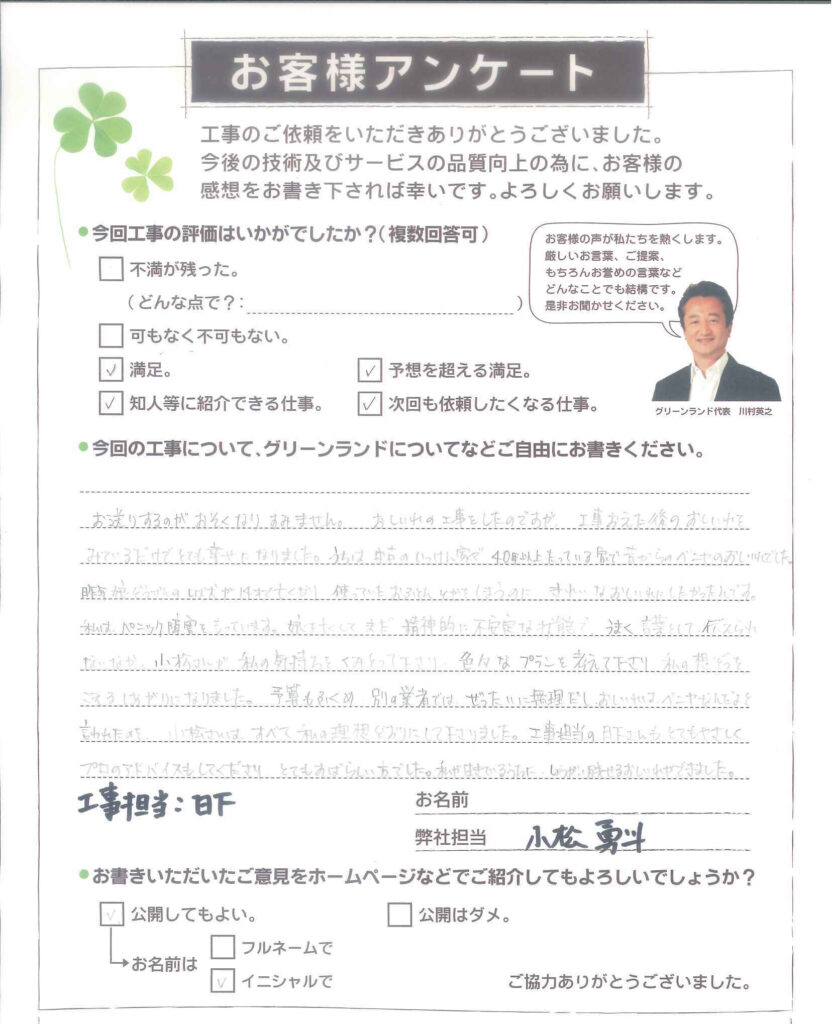 お客様アンケート
工事のご依頼をいただきありがとうございました。
今後の技術及びサービスの品質向上の為に、お客様の
感想をお書き下されば幸いです。よろしくお願いします。
今回工事の評価はいかがでしたか？（複数回答可）
不満が残った。
（どんな点で？：　）
可もなく不可もない。
満足。
予想を超える満足。
知人等に紹介できる仕事。
次回も依頼したくなる仕事。
お客様の声が私たちを熱くします。
厳しいお言葉、ご提案、
もちろんお誉めの言葉など
どんなことでも結構です。
是非お聞かせください。
グリーンランド代表　川村英之
今回の工事について、グリーンランドについてなどご自由にお書きください。
お送りするのがおそくなりすみません。おしいれの工事をしたのですが、工事おえた後のおしいれを
みているだけでとても幸せになりました。うちは中古のいっけん家で40年以上たっている家で昔からのベニヤのおしいれでした。
昨年 使っていたおふとん きれいなおしいれにしたかったんです。
私は、パニック障害をもっています。娘を亡くしてまだ精神的に不安定な状態で、上手く言葉として伝えられ
ないなか、小松さんが私の気持ちをくみとって下さり、色々なプランを考えて下さり私の想像を
こえるしあがりになりました。予算もふくめ別の業者では、ぜったいに無理だしおしいれはベニヤなんだよと
言われたのを、小松さんは、すべて私の理想どおりにして下さりました。工事担当の日下さんもとてもやさしく
プロのアドバイスもしてくださり、とてもすばらしい方でした。私が生きているうちに、 おしいれができました。
工事担当：日下
お名前
弊社担当　小松 勇斗
お書きいただいたご意見をホームページなどでご紹介してもよろしいでしょうか？
公開してもよい。
公開はダメ。
お名前は
フルネームで
イニシャルで
ご協力ありがとうございました。